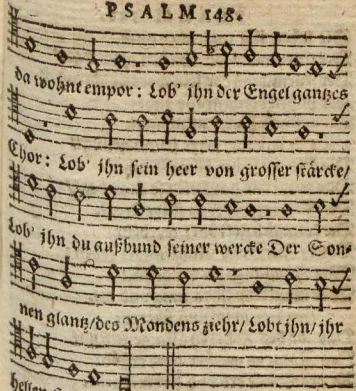 PSALM 148.
da wohnt empor: Lob' jhn der Engel gantzes
Chor: Lob' jhn sein heer von grosser stärcke/
Lob' jhn du außbund seiner wercke Der Son-
nen glantz/des Mondens ziehr/Lobt jhn/jhr
hellen